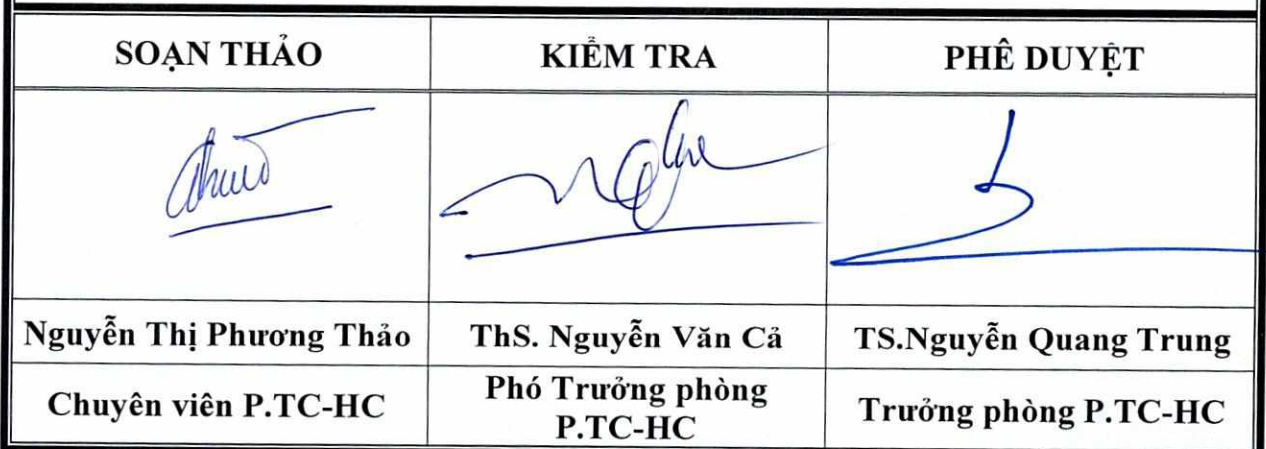 SOẠN THẢO
KIỂM TRA
PHÊ DUYỆT
Nguyễn Thị Phương Thảo
ThS. Nguyễn Văn Cả
TS.Nguyễn Quang Trung
Chuyên viên P.TC-HC
Phó Trưởng phòng
P.TC-HC
Trưởng phòng P.TC-HC